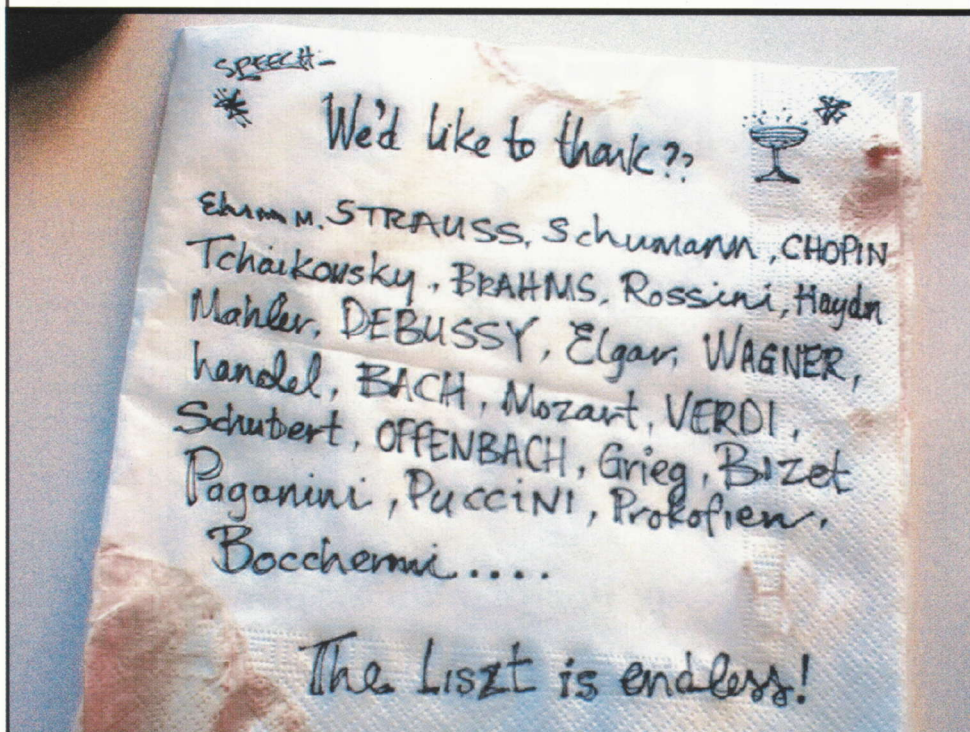 SPEECH-
We'd like to thank??
Ehmm M. STRAUSS, Schumann, CHOPIN
Tchaikowsky, BRAHMS, Rossini, Haydn
Mahler, DEBUSSY, Elgar, WAGNER,
handel, BACH, Mozart, VERDI,
Schubert, OFFENBACH, Grieg, Bizet
Paganini, PUCCiNi, Prokofiev,
Boccherini....
The Liszt is endless!